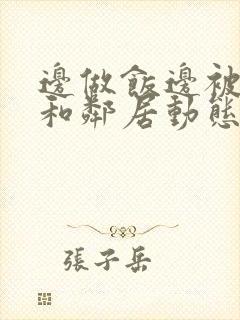 邊做飯邊被
和鄰居動態
張子岳